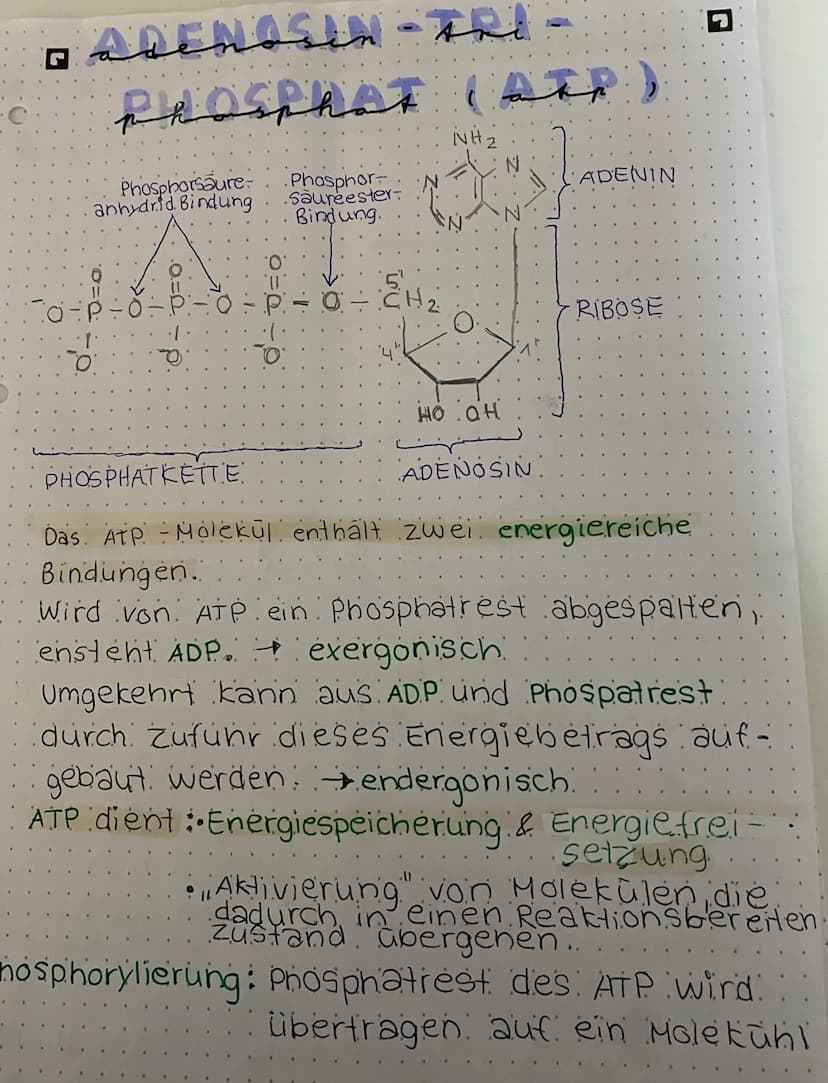 ADENOSIN-TRI-
PHOSPHAT (ATP)
adenosin - tri -
phosphat (atp)
NH2
N
N
N
N
ADENIN
Phosphorsäure-
anhydrid Bindung
Phosphor-
säureester-
Bindung
O O O
⁻O-P-O-P-O-P-O-CH2
5'
⁻O ⁻O ⁻O
O
4'' 1''
RIBOSE
HO OH
PHOSPHATKETTE
ADENOSIN
Das ATP-Molekül enthält zwei energiereiche
Bindungen.
Wird von ATP ein Phosphatrest abgespalten,
ensteht ADP. → exergonisch
Umgekehrt kann aus ADP und Phospatrest
durch Zufuhr dieses Energiebetrags auf-
gebaut werden. → endergonisch
ATP dient :• Energiespeicherung & Energiefrei-
setzung
• „Aktivierung" von Molekülen, die
dadurch in einen Reaktionsbereiten
Zustand übergehen.
hosphorylierung: Phosphatrest des ATP wird
übertragen auf ein Molekühl